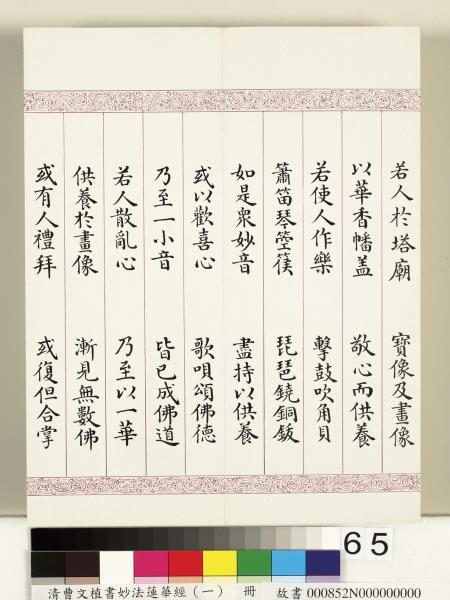 若人於塔廟　寶像及畫像
以華香幡蓋　敬心而供養
若使人作樂　擊鼓吹角貝
簫笛琴箜篌　琵琶鐃銅鈸
如是眾妙音　盡持以供養
或以歡喜心　歌唄頌佛德
乃至一小音　皆已成佛道
若人散亂心　乃至以一華
供養於畫像　漸見無數佛
或有人禮拜　或復但合掌
65
清曹文植書妙法蓮華經（一）　冊　故書 000852N000000000